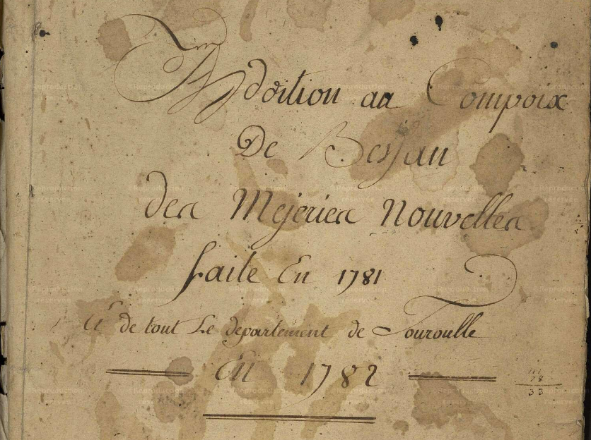 Addition au Compoix
De Bessan
des Mejeries Nouvelles
faite En 1781
Et de tout Le departement de Touroulle
en 1782